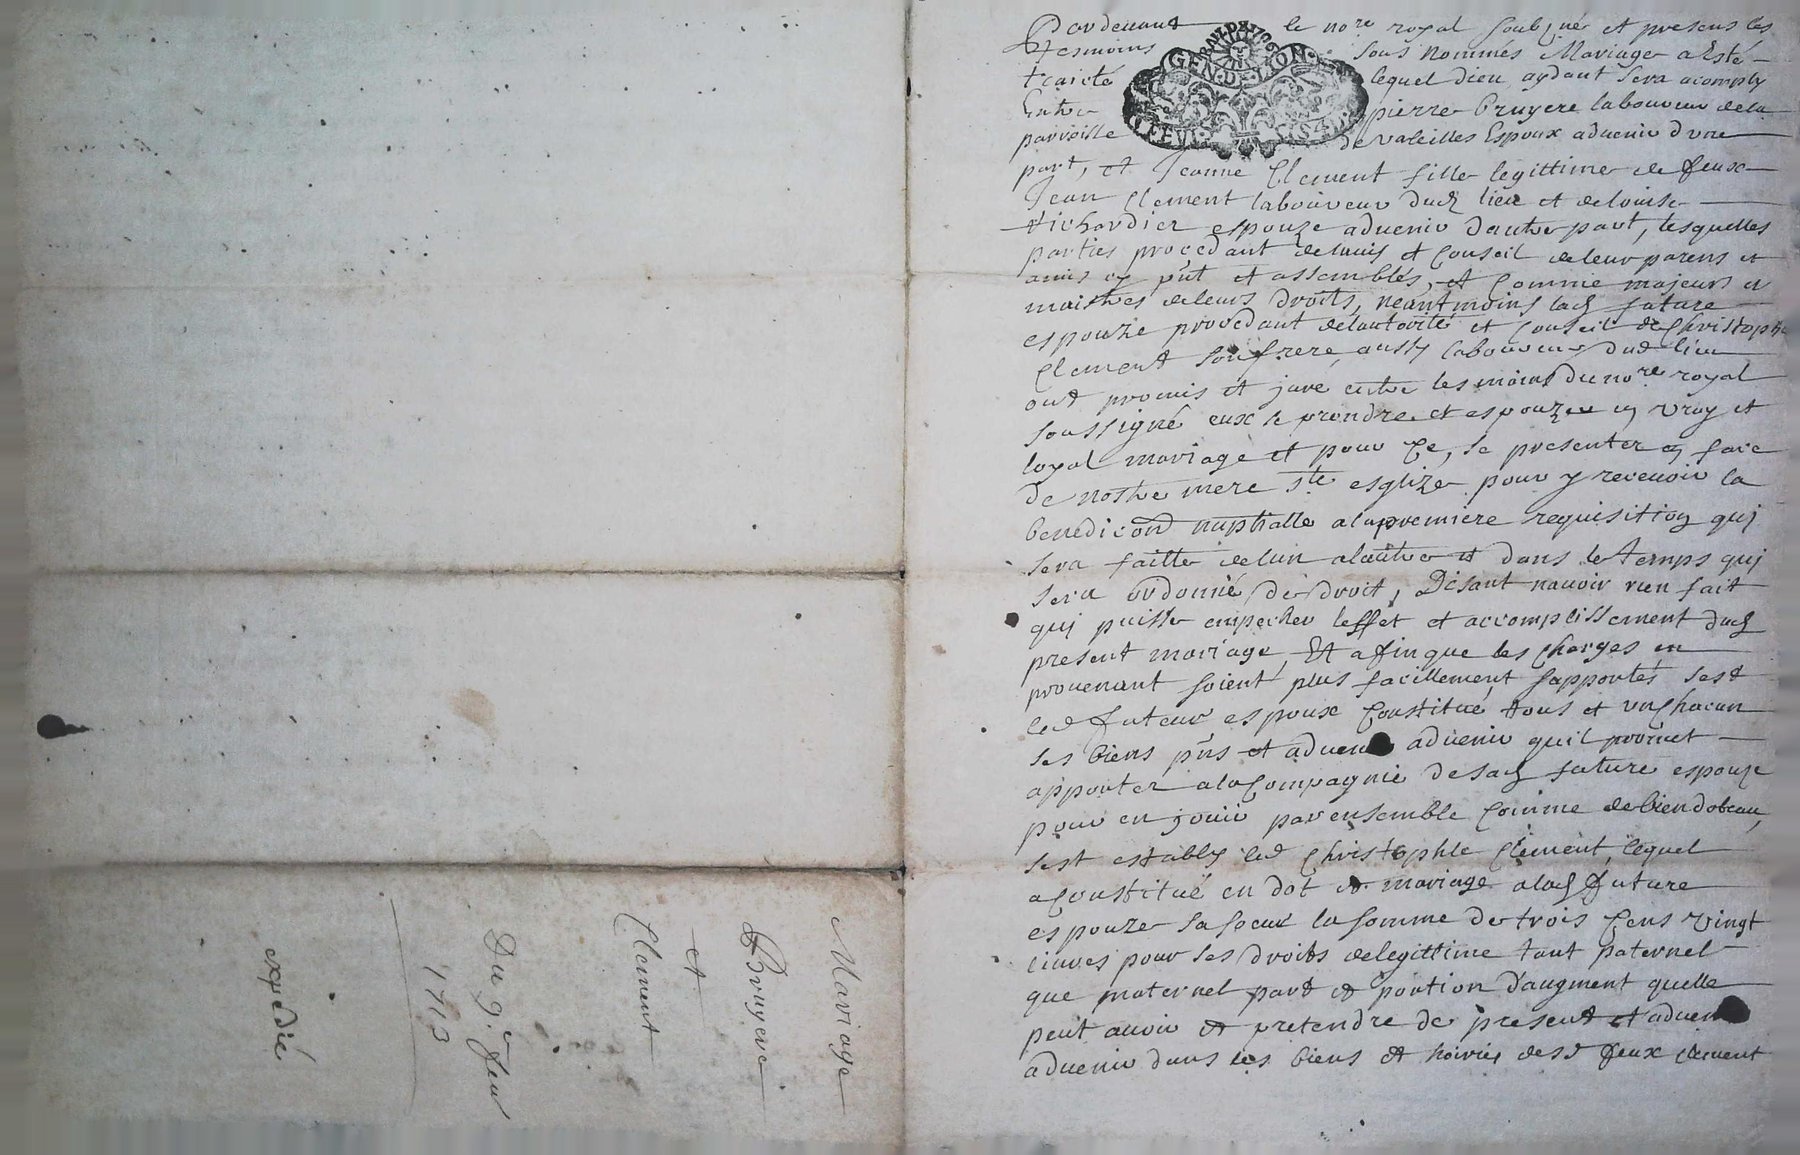 Pardevant le no.re royal soubzné et presens les
tesmoins sous nommes Mariage a esté
traicté lequel dieu aydant sera acomply
Entre pierre Bruyere laboureur de la
parroisse de valeilles Espoux advenir dune
part, et Jeanne Clement fille legittime de feux
Jean Clement laboureur dud lieu et de louise
Richardier espouze advenir dautre part, lesquelles
parties procedant de lavis et Conseil de leur parens et
amis cy pnt et assemblés, et Comme majeurs et
maistres de leurs droits, neantmoins lad future
espouze procedant de lautorité et Conseil de Christophle
Clement son frere aussy laboureur dud lieu
ont promis et juré entre les mains du no.re royal
soussigné eux se prendre et espouzer en vray et
loyal mariage et pour Ce, se presenter en face
de nostre mere s.te esglize pour y recevoir la
benedicon nuptialle a la premiere requisition qui
sera faitte de lun a lautre et dans le temps qui
sera ordonné de droit, Disant navoir rien fait
qui puisse empecher leffet et accomplissement dud
present mariage, Et afin que les Charges en
provenant soient plus facillement supportés sest
led futeur espoux Constitué tous et un Chacun
ses biens pns et adven advenir quil promet
apporter a la Compagnie de sad future espouze
pour en jouir par ensemble Comme de bien dotaux,
sest estably led Christophle Clement, lequel
a Constitué en dot et mariage a lad future
espouze sa soeur la somme de trois Cens vingt
livres pour ses droits de legittime tant paternel
que maternel part et portion d'augment quelle
peut avoir et pretendre de present et adven
advenir dans les biens et hoiries desd feux Clement
GEN·DE·LION
Mariage
Bruyere
et
Clement
Du 9.e feu
1713
expedié